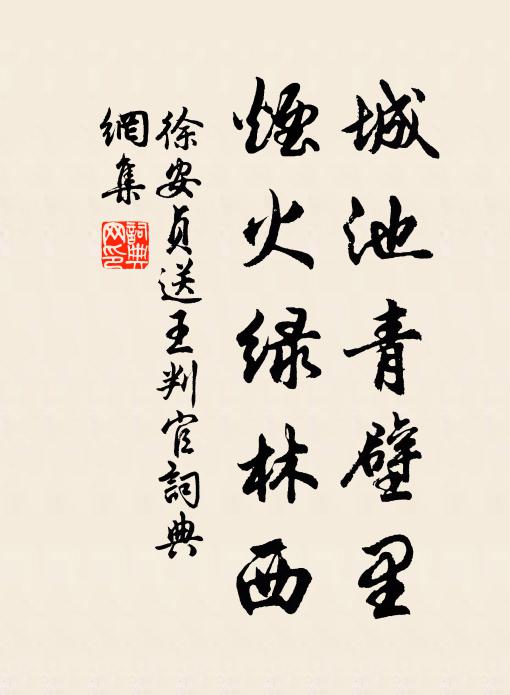 城池青壁里
煙火绿林西
徐安貞送王判官詞典
網集
詞典
网印